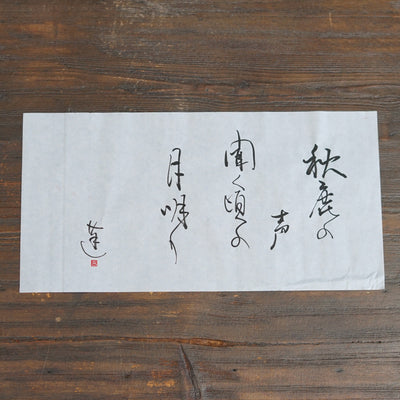 秋鹿の
声
聞く頃の
月唯り
蓮